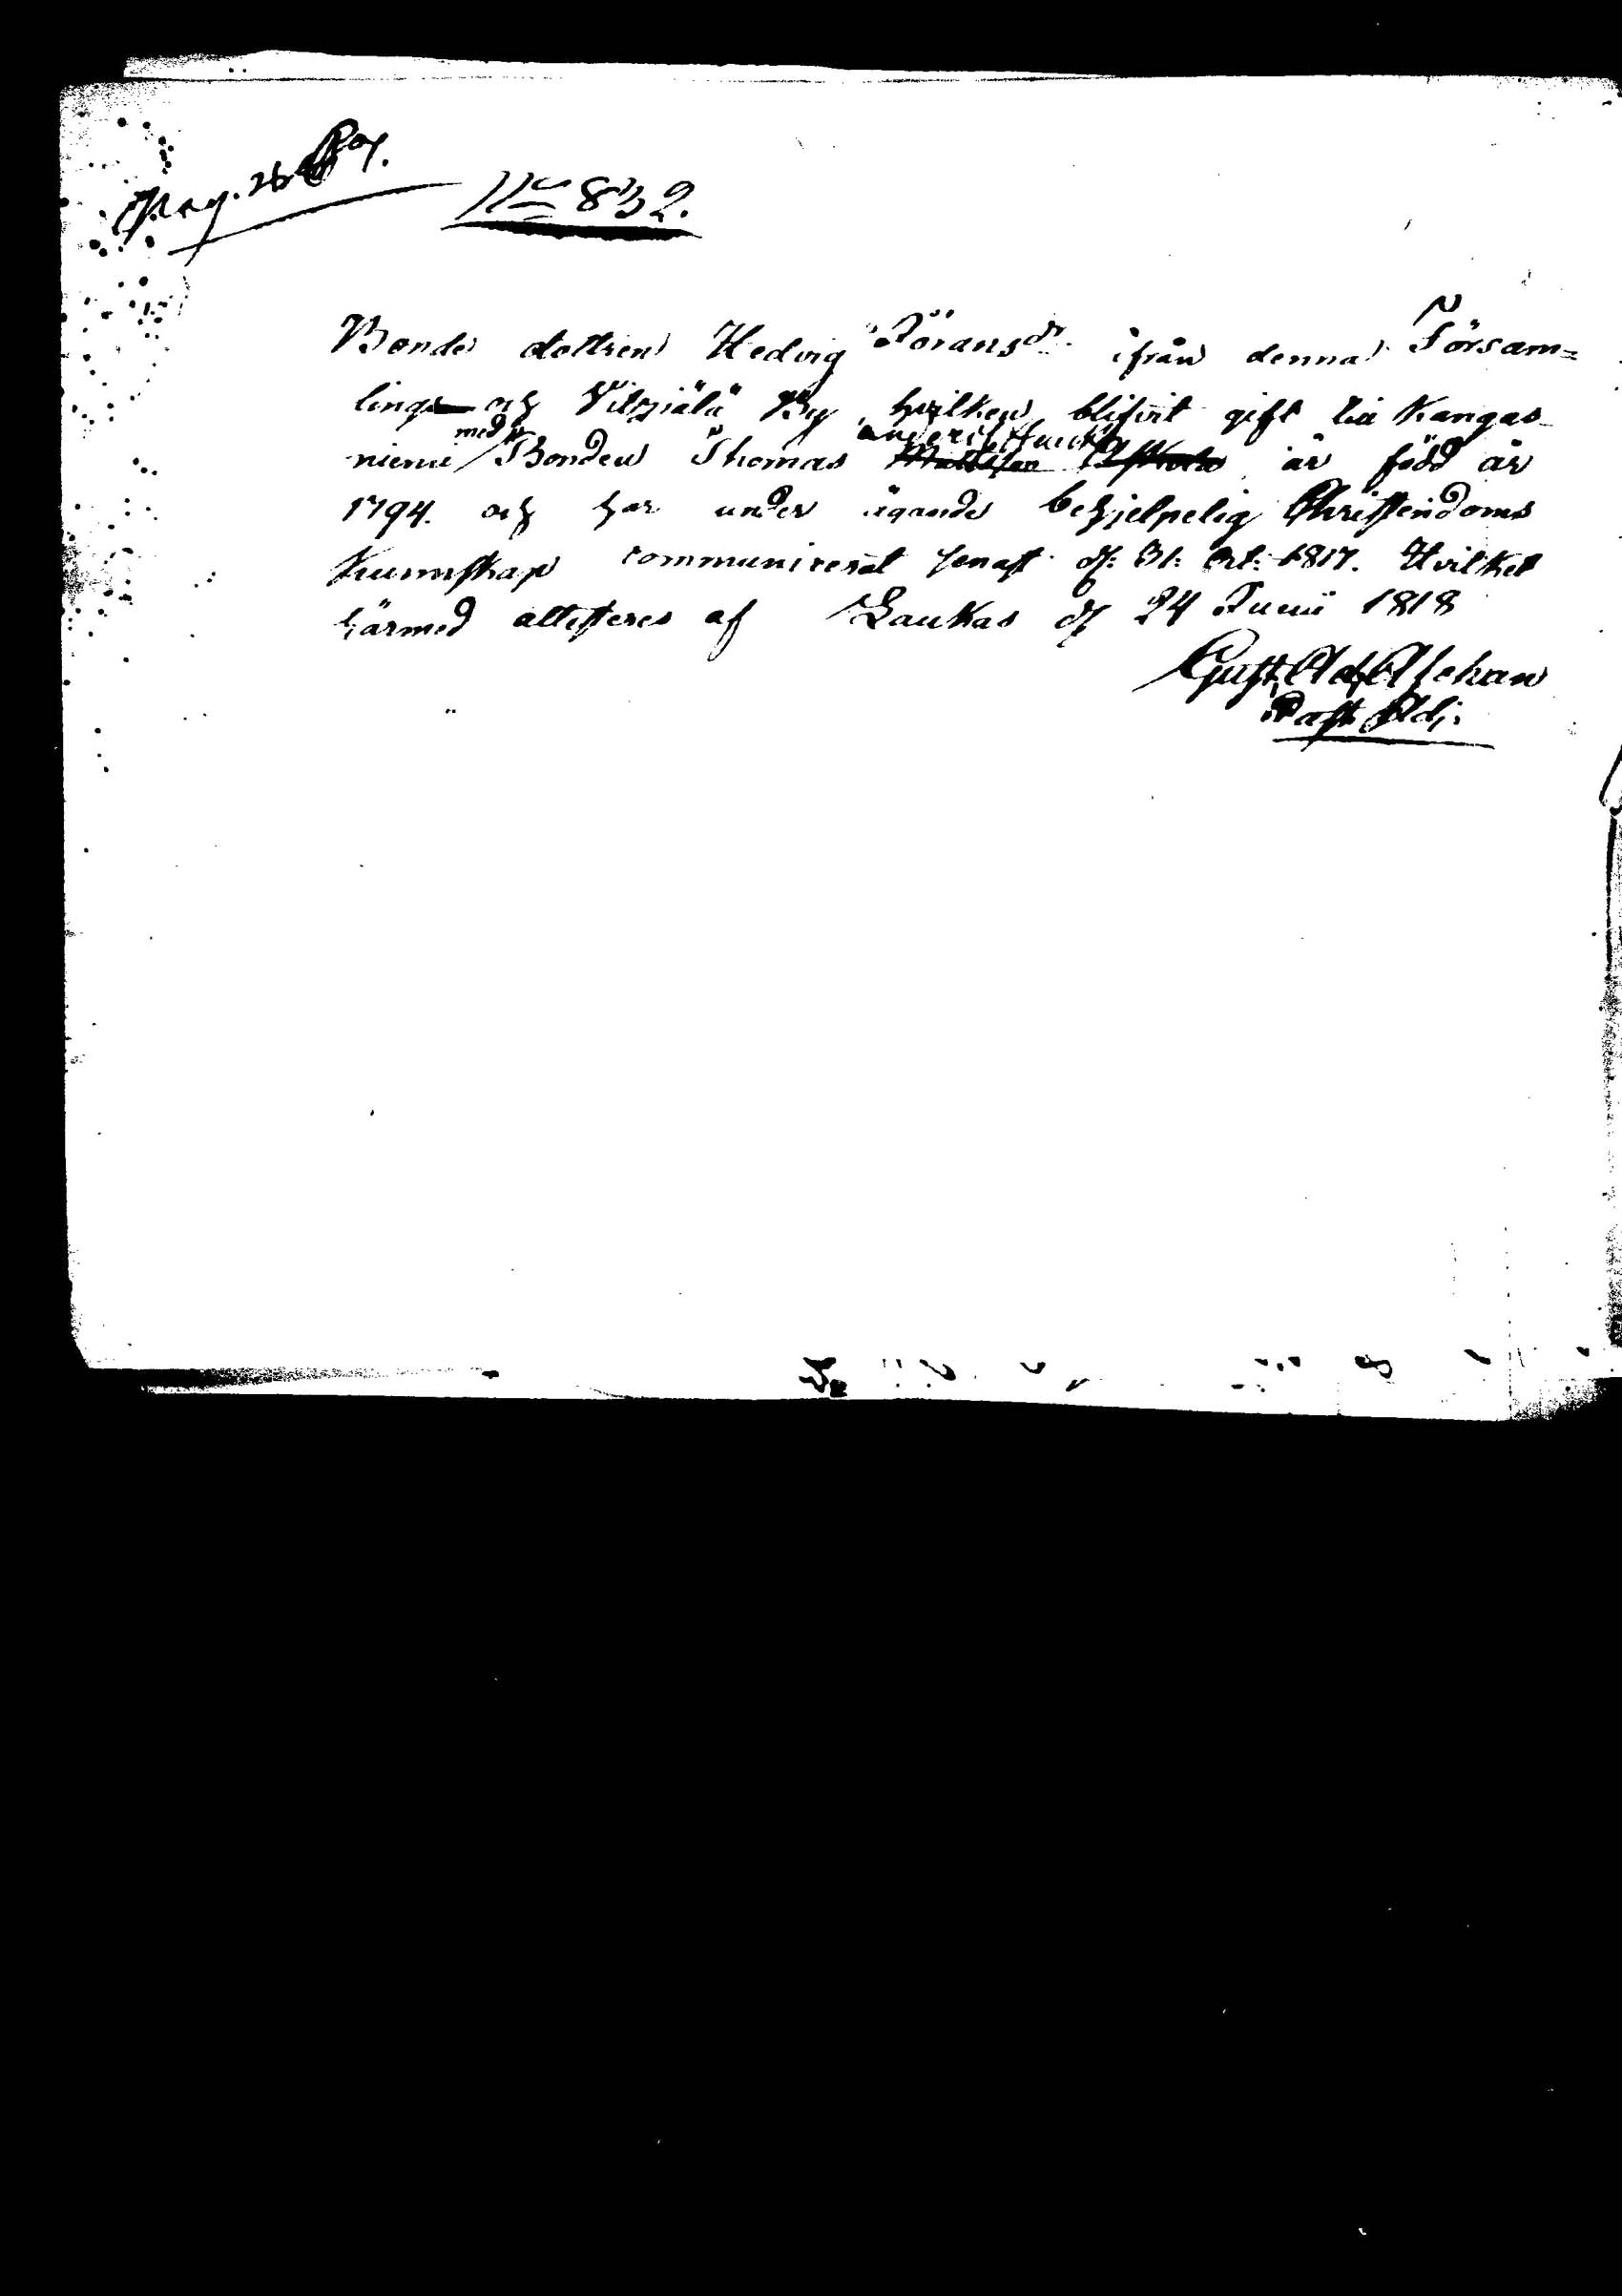 Pag. 26
No 832.
Bonde dottren Hedvig Jöransdr. ifrån denna Försam=
linge och Vitzjälä By, hvilken blifvit gift till Kangas-
med
niemi Bonden Thomas är född år
1794. och har under ägande behjelpelig Christendoms
Kunnskap communicerat senast d: 31: Oct: 1817. Hvilket
härmed attesteres af Laukas d 24 Junii 1818
Gust. Ad. Aschan
Past. Adj.